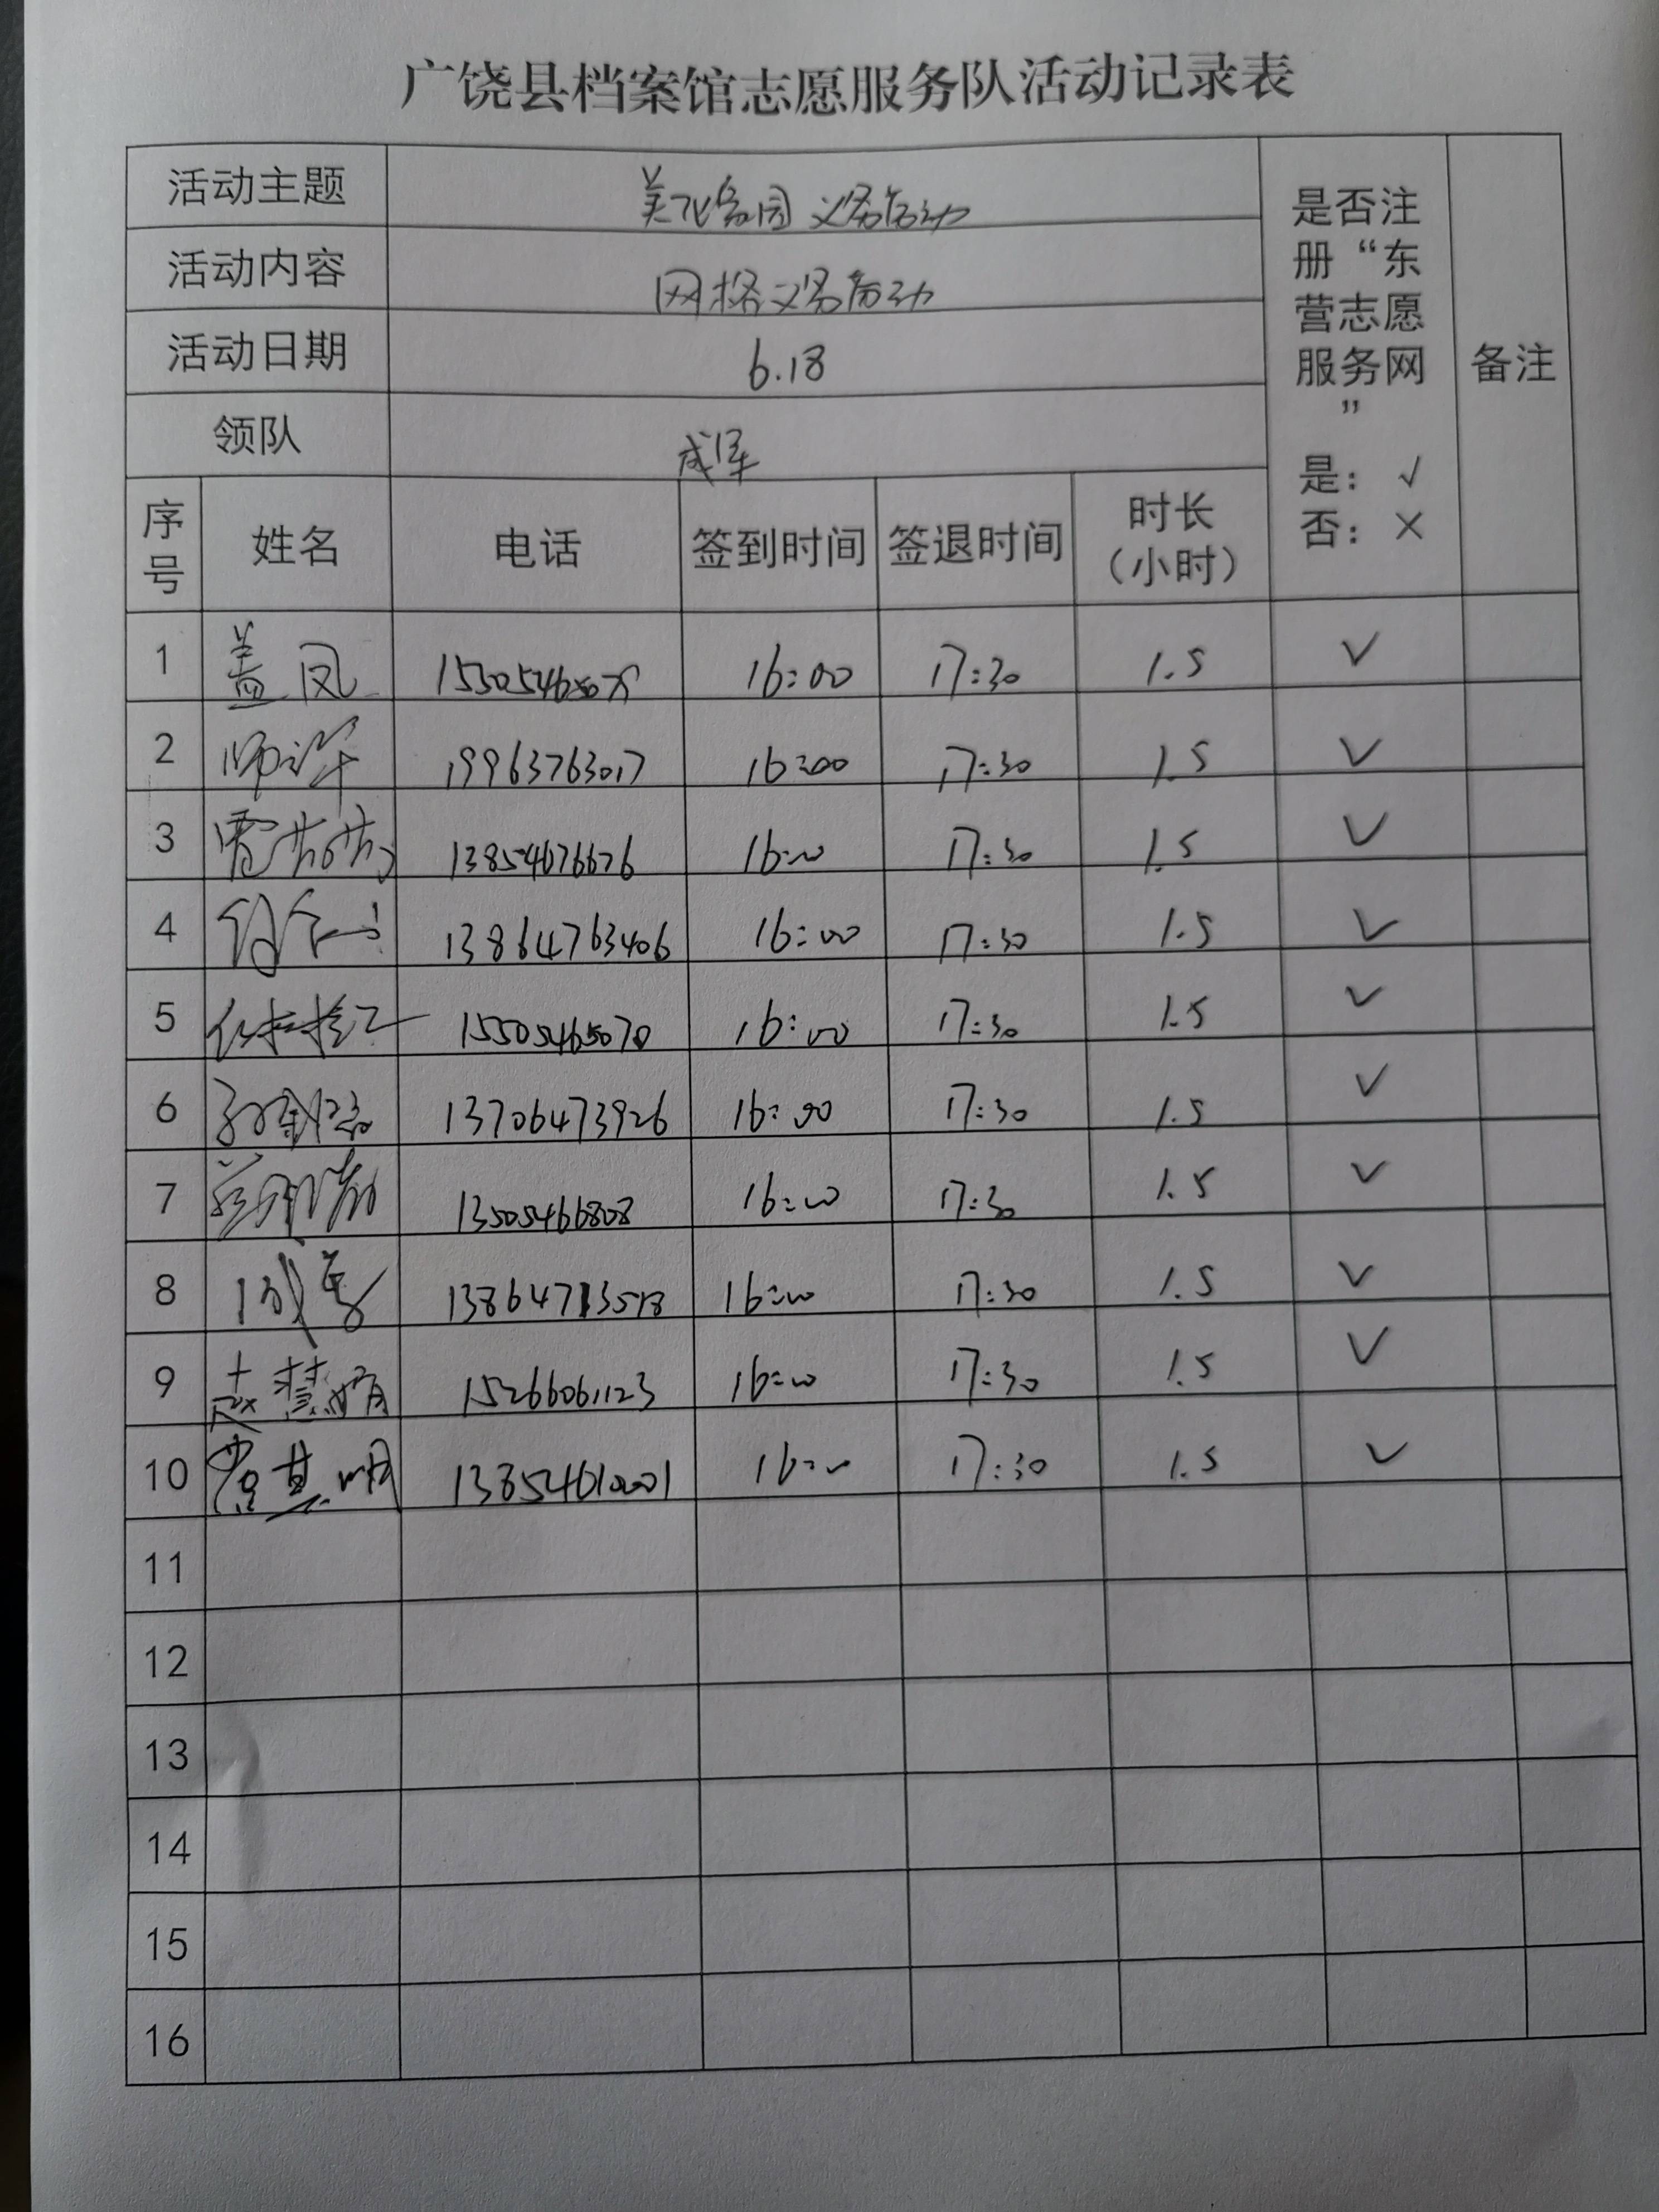 广饶县档案馆志愿服务队活动记录表
活动主题 美化家园 义务劳动
活动内容 网格义务劳动
活动日期 6.18
领队 成军
是否注册“东营志愿服务网”
是：√
否：×
备注
序号 姓名 电话 签到时间 签退时间 时长（小时）
1 盖凤 16:00 17:30 1.5 √
2 19963763017 16:00 17:30 1.5 √
3 13854676676 16:00 17:30 1.5 √
4 13864763406 16:00 17:30 1.5 √
5 15505465070 16:00 17:30 1.5 √
6 13706473926 16:00 17:30 1.5 √
7 13505466808 16:00 17:30 1.5 √
8 成军 16:00 17:30 1.5 √
9 赵慧娟 15266061123 16:00 17:30 1.5 √
10 16:00 17:30 1.5 √
11
12
13
14
15
16